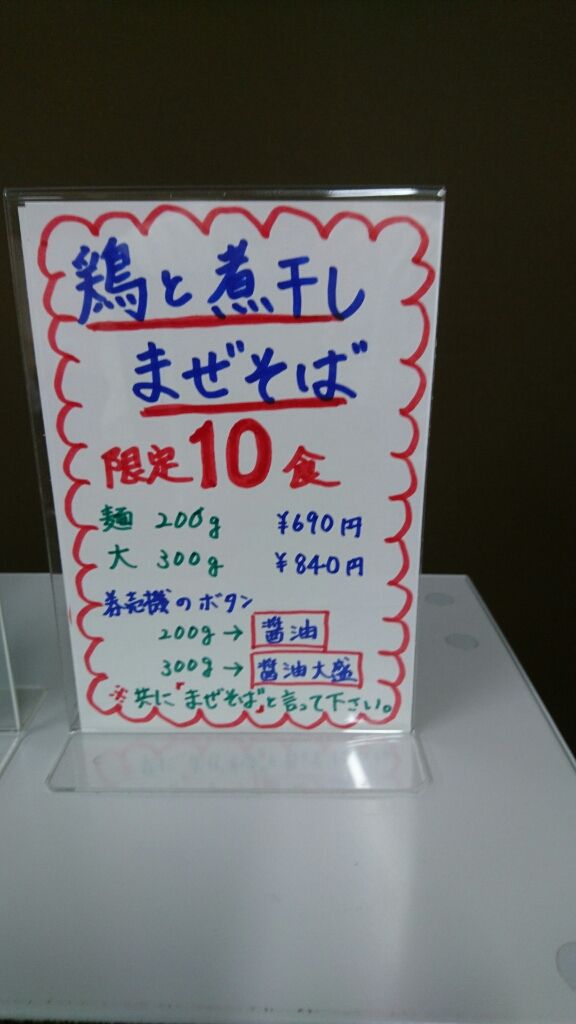 鶏と煮干し
まぜそば
限定10食
麺 200g ¥690円
大 300g ¥840円
券売機のボタン
200g→ 醤油
300g→ 醤油大盛
※共に「まぜそば」と言って下さい。